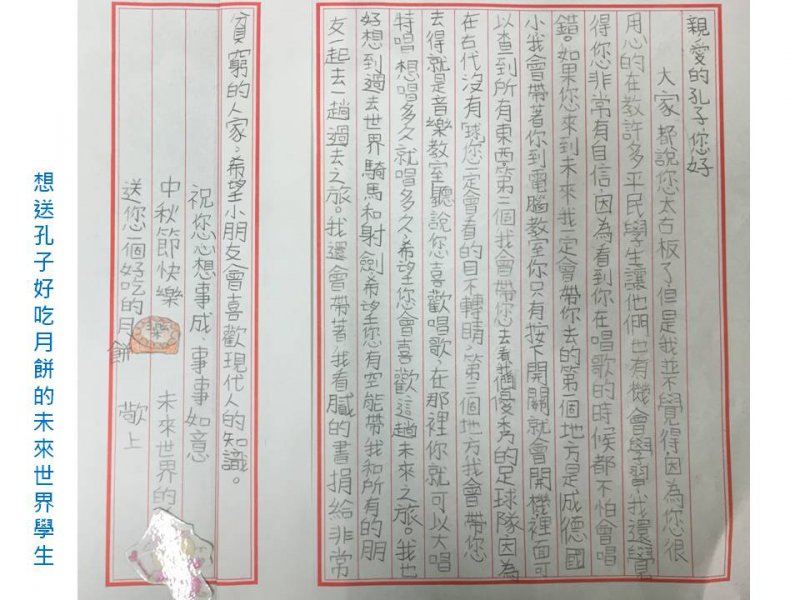 親愛的孔子,您好
大家都說您太古板了但是我並不覺得,因為您很
用心的在教許多平民學生讓他們也有機會學習,我還覺
得您非常有自信,因為看到你在唱歌的時候都不怕會唱
錯。如果您來到未來我一定會帶你去的第一個地方是成德國
小,我會帶著你到電腦教室你只有按下開關就會開機裡面可
以查到所有東西。第二個我會帶您去看我們優秀的足球隊因為
在古代沒有球,您一定會看的目不轉睛,第三個地方我會帶您
去得就是音樂教室聽說您喜歡唱歌,在那裡你就可以大唱
特唱,想唱多久就唱多久,希望您會喜歡這趟未來之旅。我也
好想到過去世界騎馬和射劍希望您有空能帶我和所有的朋
友起去一趟過去之旅。我還會帶著,我看膩的書捐給非常
貧窮的人家。希望小朋友會喜歡現代人的知識。
祝您心想事成、事事如意
中秋節快樂 未來世界的
送您一個好吃的月餅 敬上
想送孔子好吃月餅的未來世界學生